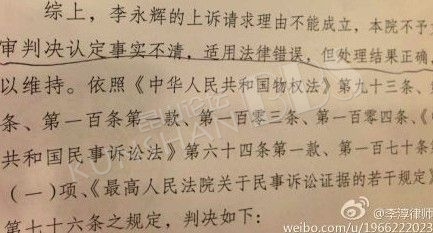 综上，李永辉的上诉请求理由不能成立，本院不予
审判决认定事实不清，适用法律错误，但处理结果正确，
以维持。依照《中华人民共和国物权法》第九十三条、
条、第一百条第一款、第一百零三条、第一百零四条、《
共和国民事诉讼法》第六十四条第一款、第一百七十条
（一）项、《最高人民法院关于民事诉讼证据的若干规定》
第七十六条之规定，判决如下：
@李淳律师
weibo.com/u/1966222023